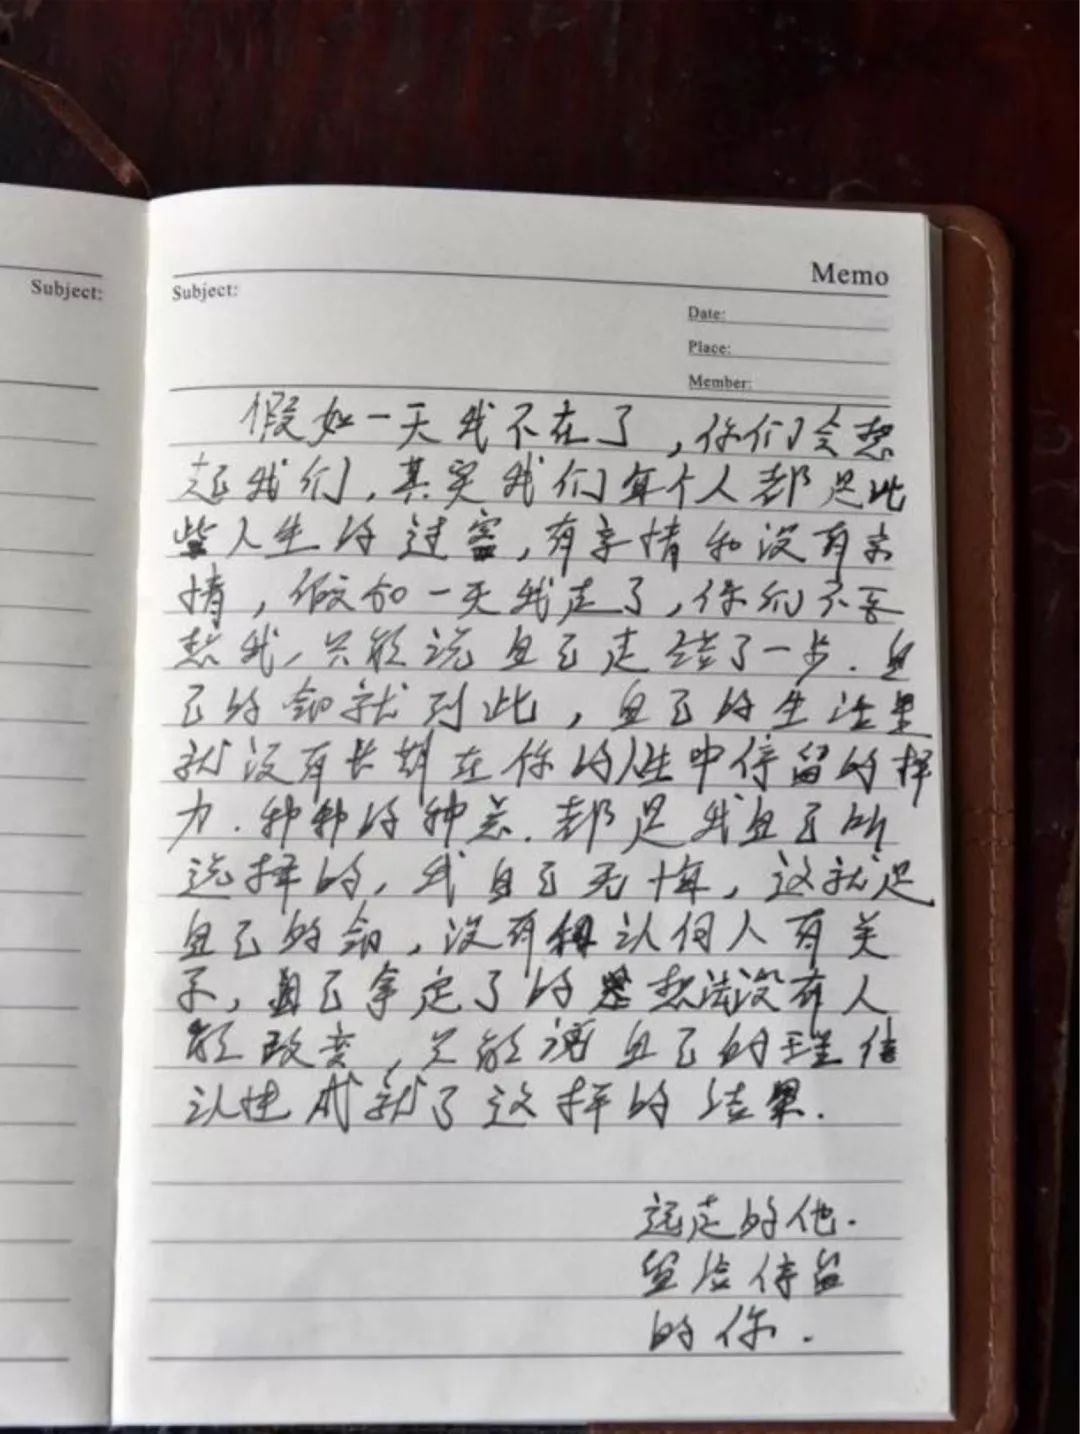 Subject:
Subject:
Memo
Date:
Place:
Member:
假如一天我不在了，你们会想
起我们，其实我们每个人都是此
些人生的过客，有亲情和没有亲
情，假如一天我走了，你们不要
想我，只能说自己走错了一步．自
己的命就到此，自己的生活里
就没有长期在你的人生中停留的择
力．种种的种差．都是我自己所
选择的，我自己无悔，这就是
自己的命，没有和认何人有关
系，自己拿定了的想法没有人
能改变，只能谓自己的理信
认也成就了这样的结果．
远走的他．
留给停留
的你．